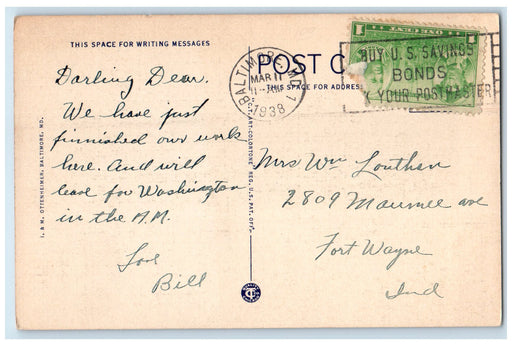 THIS SPACE FOR WRITING MESSAGES
POST C
THIS SPACE FOR ADDRESS
BALTIMORE, MD. 1
MAR 11
1938
ONE CENT
1 1
BUY U.S. SAVINGS
BONDS
YOUR POSTMASTER
Darling Dear.
We have just
finnished our work
here. And will
leave for Washington
in the A.M.
Love
Bill
I. & M. OTTENHEIMER, BALTIMORE, MD.
C.T. ART-COLORTONE REG. U.S. PAT. OFF.
Mrs Wm Louthan
2809 Maumee ave
Fort Wayne
Ind